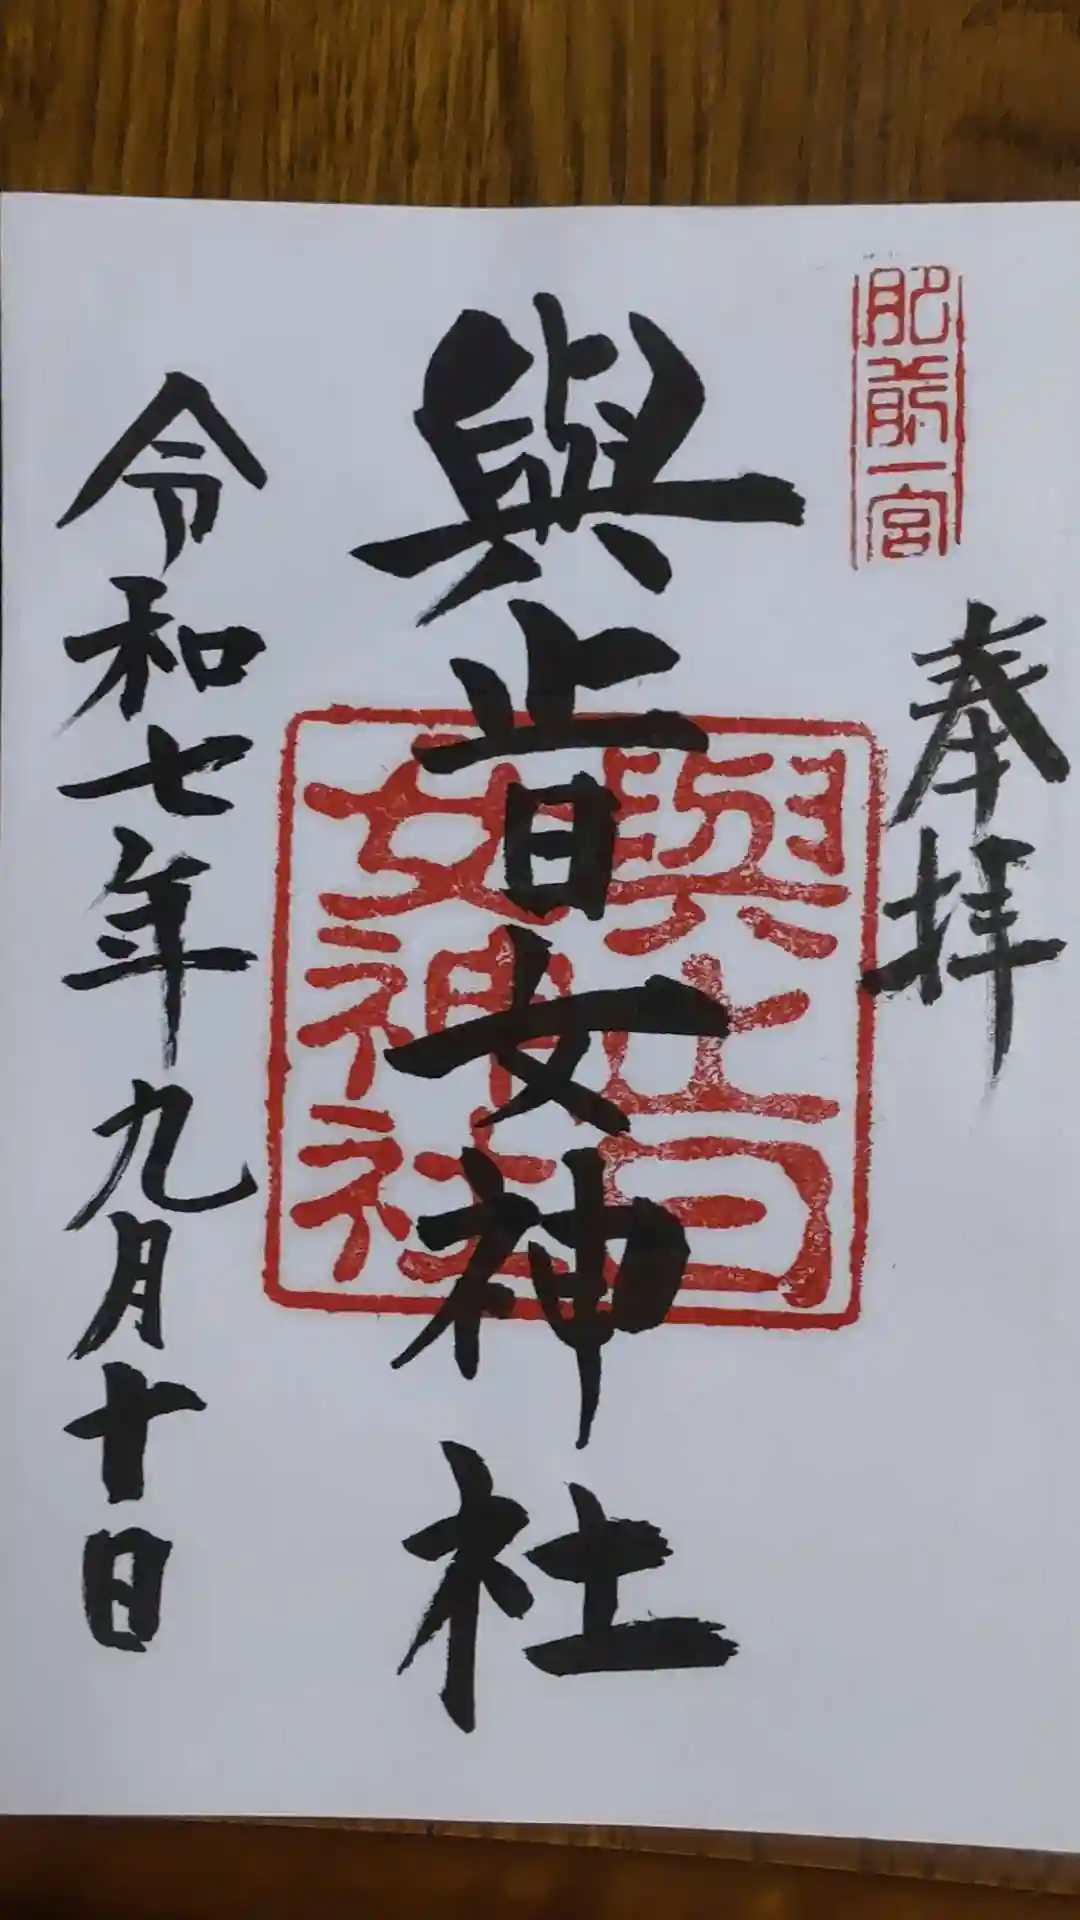 肥前一宮
奉拝
與止日女神社
與止日
女神社
令和七年九月十日